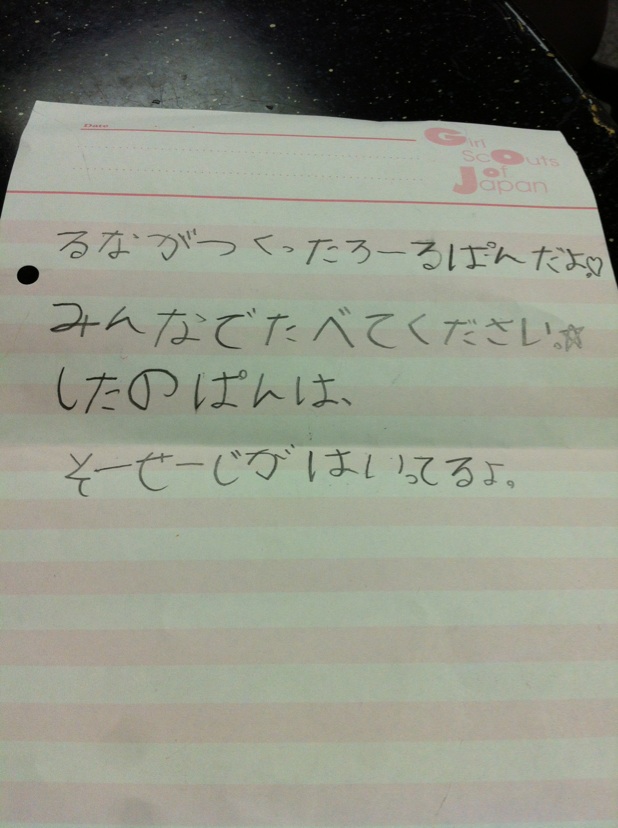 Date
Girl
Scouts
of
Japan
るながつくったろーるぱんだよ。♡
みんなでたべてください。☆
したのぱんは、
そーせーじがはいってるよ。